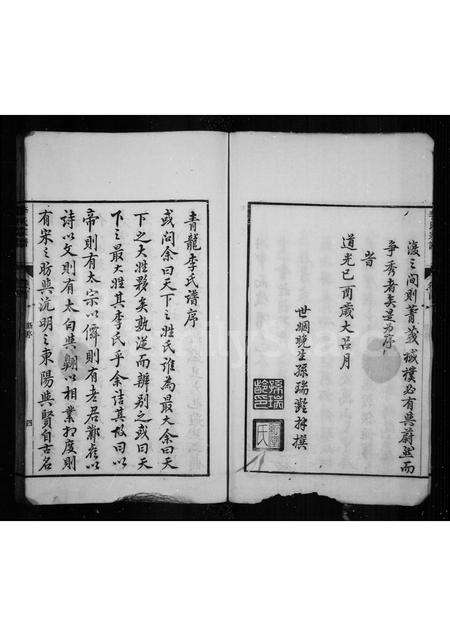 濩之間則菁莪棫樸必有與蔚然而
爭秀者矣是為序
旹
道光己酉歲大呂月
世姻晚生孫瑞齡拜撰
青龍李氏譜序
或問余曰天下之姓氏誰為最大余曰天
下之大姓夥矣孰從而辨别之或曰天
下之最大姓其李氏乎余詰其故曰以
帝則有太宗以儒則有老君鄴侯以
詩以文則有太白與翺以相業相度則
有宋之昉與沆明之東陽與賢自古名
四